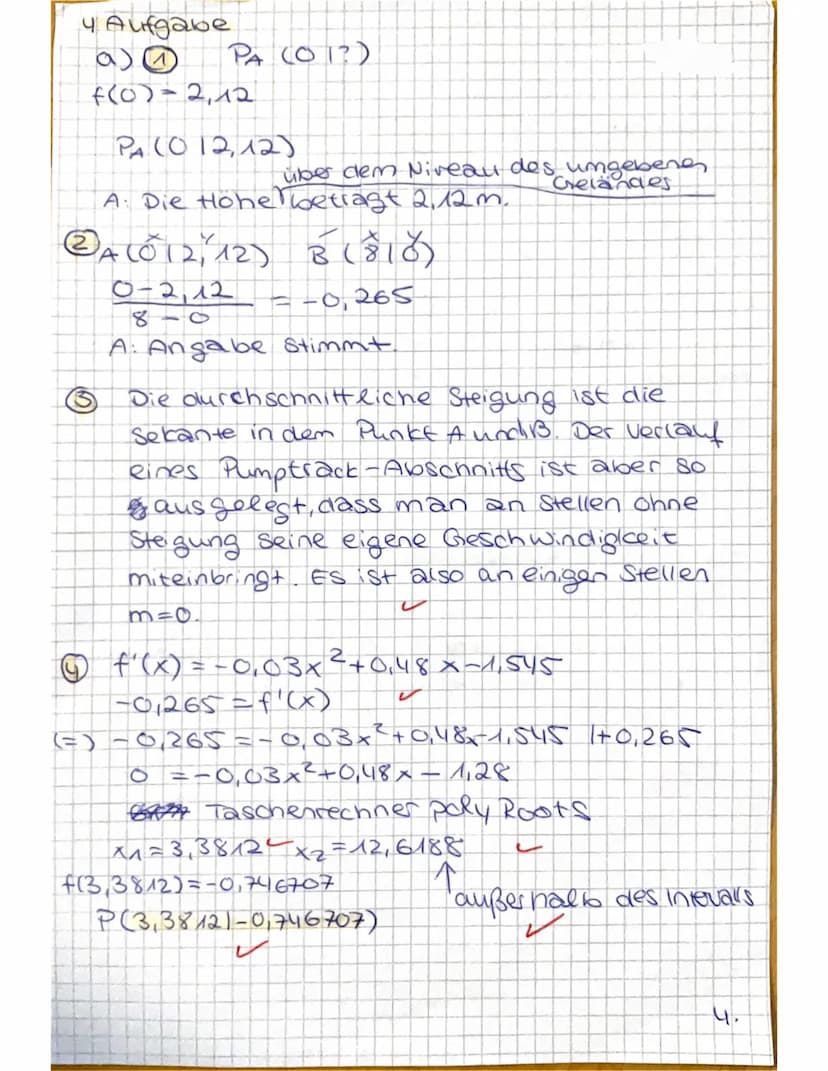 4 Aufgabe
a) 1 PA (0|?)
f(0) = 2,12
PA (0|2,12)
über dem Niveau des umgebenen Geländes
A: Die Höhe beträgt 2,12m.
2 A (0|2,12) B (8|0)
x y x y
0-2,12
8-0
= -0,265
A: Angabe stimmt.
3 Die durchschnittliche Steigung ist die
Sekante in dem Punkt A und B. Der Verlauf
eines Pumptrack-Abschnitts ist aber so
ausgelegt, dass man an Stellen ohne
Steigung seine eigene Geschwindigkeit
miteinbringt. Es ist also an einigen Stellen
m=0.
4 f'(x) = -0,03x²+0,48x-1,545
-0,265 = f'(x)
(=) -0,265 = -0,03x²+0,48x-1,545 |+0,265
0 = -0,03x²+0,48x-1,28
Taschenrechner poly Roots
x1=3,3812 x2=12,6188
f(3,3812)=-0,746707
↑ außerhalb des Intervals
P(3,3812|-0,746707)
4.